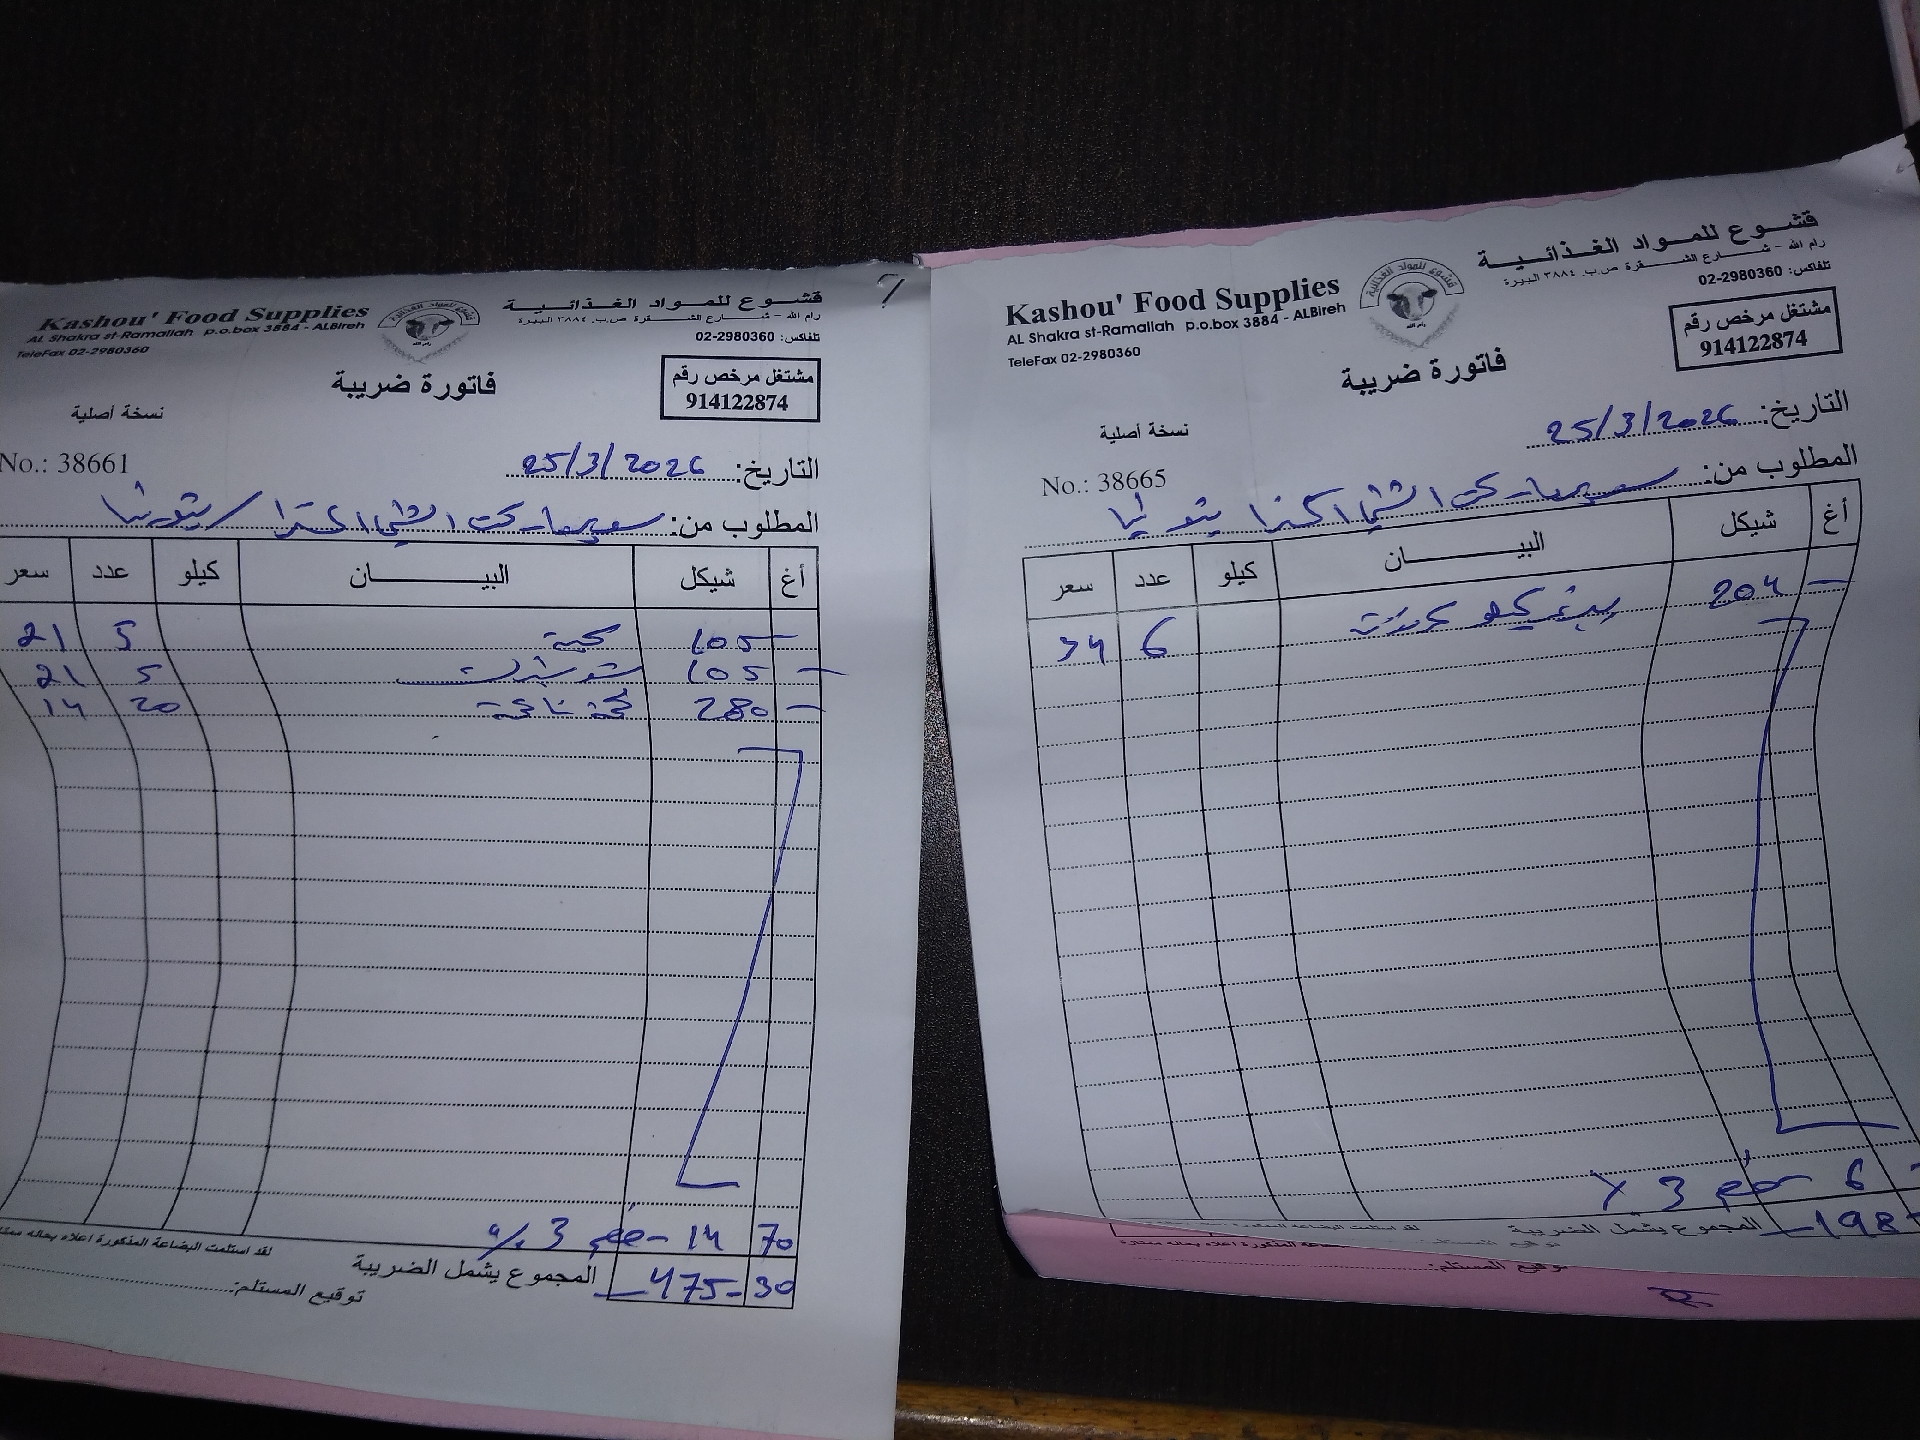 Kashou' Food Supplies
AL Shakra st-Ramallah p.o.box 3884 - ALBireh
TeleFax 02-2980360
قشوع للمواد الغذائية
رام الله - شارع الشقرة ص.ب. ٣٨٨٤ البيرة
تلفاكس: 02-2980360
مشتغل مرخص رقم
914122874
فاتورة ضريبة
نسخة أصلية
No.: 38661
التاريخ: 25/3/2026
المطلوب من: سوبرماركت الشلي اكسترا / بيتونيا
أغ شيكل البيـــــــان كيلو عدد سعر
105 5 21
105 5 21
280 لحمة ناعمة 20 14
70 14 خصم 3 %
المجموع يشمل الضريبة 475 30
لقد استلمت البضاعة المذكورة اعلاه بحاله
توقيع المستلم:
Kashou' Food Supplies
AL Shakra st-Ramallah p.o.box 3884 - ALBireh
TeleFax 02-2980360
قشوع للمواد الغذائية
رام الله - شارع الشقرة ص.ب. ٣٨٨٤ البيرة
تلفاكس: 02-2980360
مشتغل مرخص رقم
914122874
فاتورة ضريبة
نسخة أصلية
No.: 38665
التاريخ: 25/3/2026
المطلوب من: سوبرماركت الشلي اكسترا بيتونيا
أغ شيكل البيـــــــان كيلو عدد سعر
204 6 34
6 خصم 3 %
المجموع يشمل الضريبة 198
توقيع المستلم: